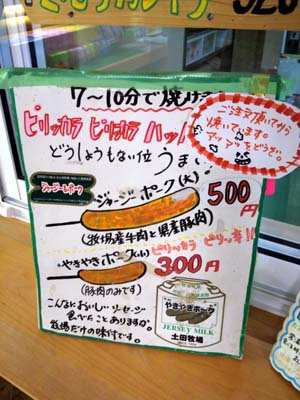 7〜10分で焼け
ピリッカラ ピリカラ ハッ
どうしょうもない位 うま
ご注文頂いてから
焼いてます。
アツをどうぞ。
ジャージーポーク
ジャージーポーク(大)
500円
(牧場産牛肉と県産豚肉)
やきやきポーク(小)
ピリッカラ ピリッ辛!!
300円
(豚肉のみです)
こんなにおいしいソーセージ
食べたことありますか。
牧場だけの味付です。
やきやきポーク
JERSEY MILK
土田牧場